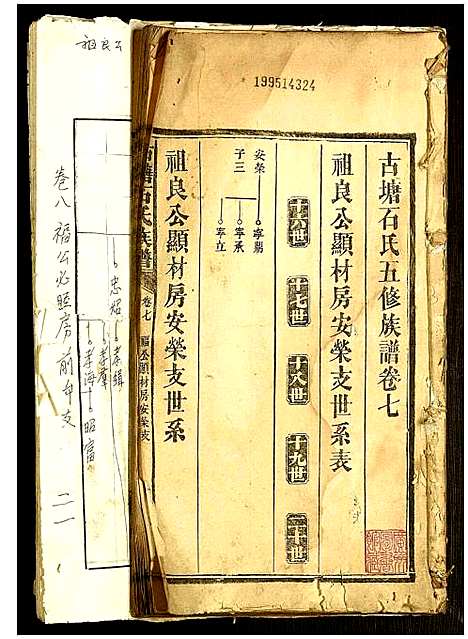 199514324
古塘石氏五修族譜卷七
祖良公顯材房安榮支世系表
十六世
十七世
十八世
十九世
二十世
安榮
子三
寧翯
寧承
寧立
祖良公顯材房安榮支世系
古塘石氏族譜
卷七
福公顯材房安榮支
祖良公
忠紹
孝緝
孝羣
孝海
昭富
卷八 福公必照房前年支 二一